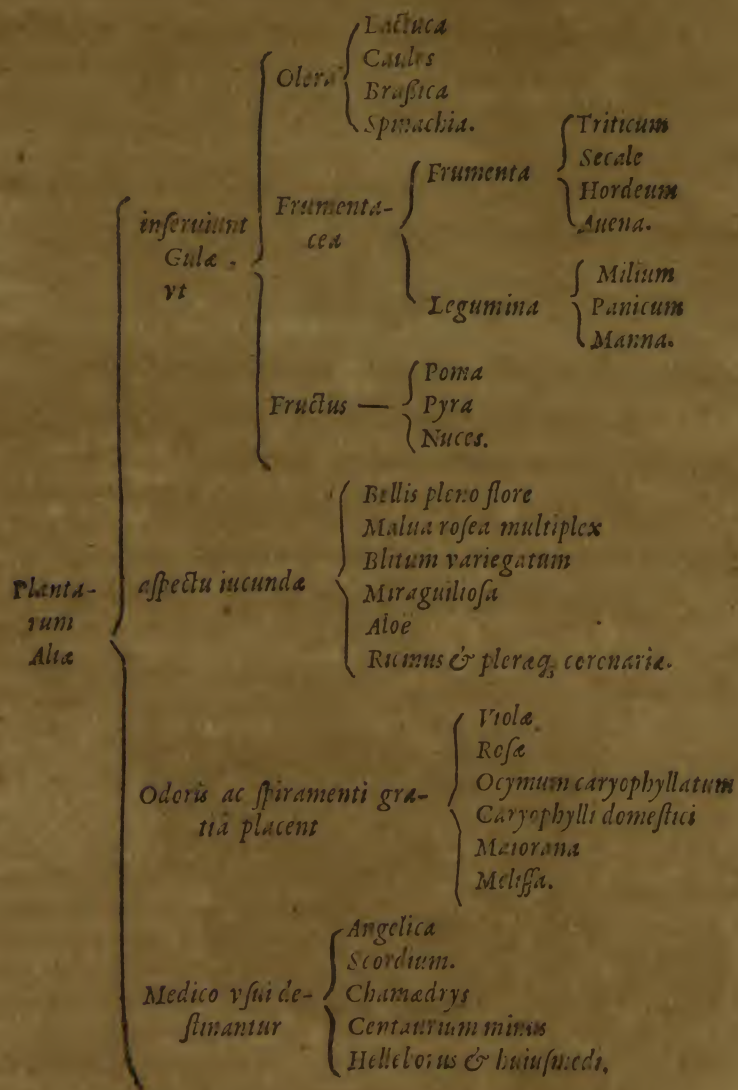 Plantarum
Aliæ
inſeruiunt
Gulæ,
vt
Olera
Lactuca
Caules
Braßica
Spinachia.
Frumenta-
cea
Frumenta
Triticum
Secale
Hordeum
Auena.
Legumina
Milium
Panicum
Manna.
Fructus
Poma
Pyra
Nuces.
aſpectu iucundæ
Bellis pleno flore
Malua roſea multiplex
Blitum variegatum
Miraguilioſa
Aloë
&  pleraq; coronariæ.
Odoris ac ſpiramenti gra-
tiâ placent
Violæ
Roſæ
Ocymum caryophyllatum
Caryophylli domeſtici
Maiorana
Meliſſa.
Medico vſui de-
ſtinantur
Angelica
Scordium.
Chamædrys
Centaurium minus
Helleborus & huiuſmodi.